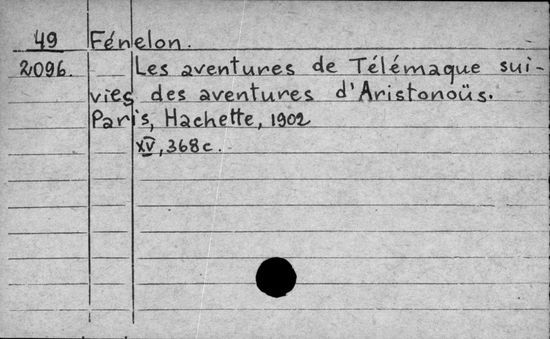 49 Fénelon.
2096. Les aventures de Télémaque sui-
vies des aventures d'Aristonoüs.
Paris, Hachette, 1902
XV, 368c.